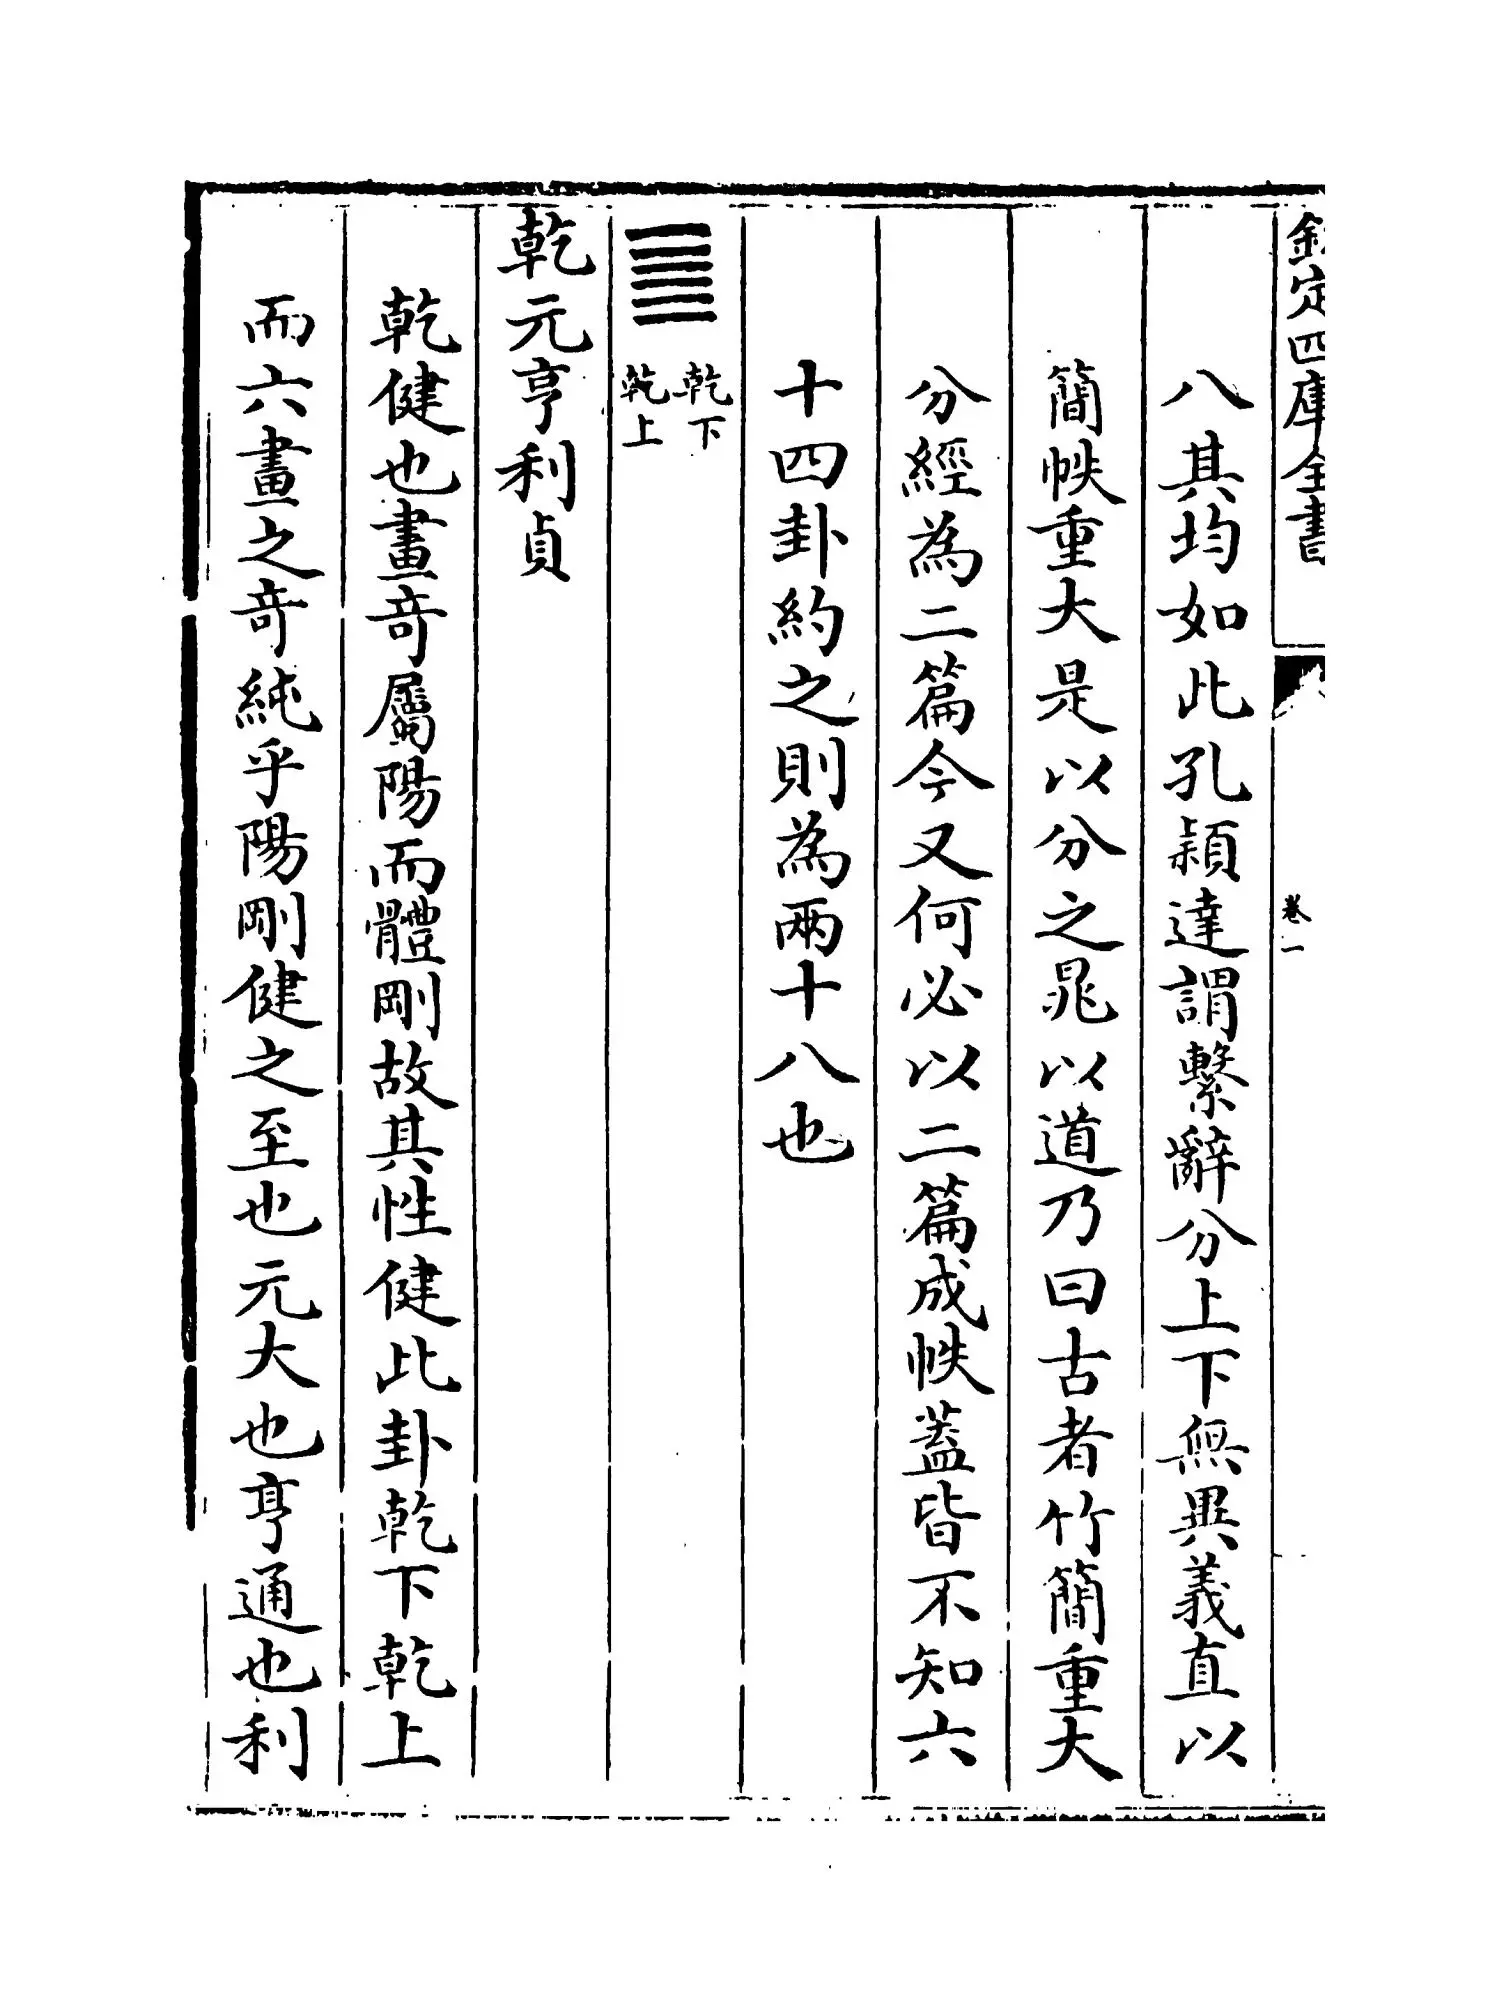 欽定四庫全書
卷一
八其均如此孔頴達謂繫辭分上下無異義直以
簡帙重大是以分之晁以道乃曰古者竹簡重大
分經為二篇今又何必以二篇成帙蓋皆不知六
十四卦約之則為兩十八也
䷀乾下
乾上
乾元亨利貞
乾健也畫竒屬陽而體剛故其性健此卦乾下乾上
而六畫之竒純乎陽剛健之至也元大也亨通也利